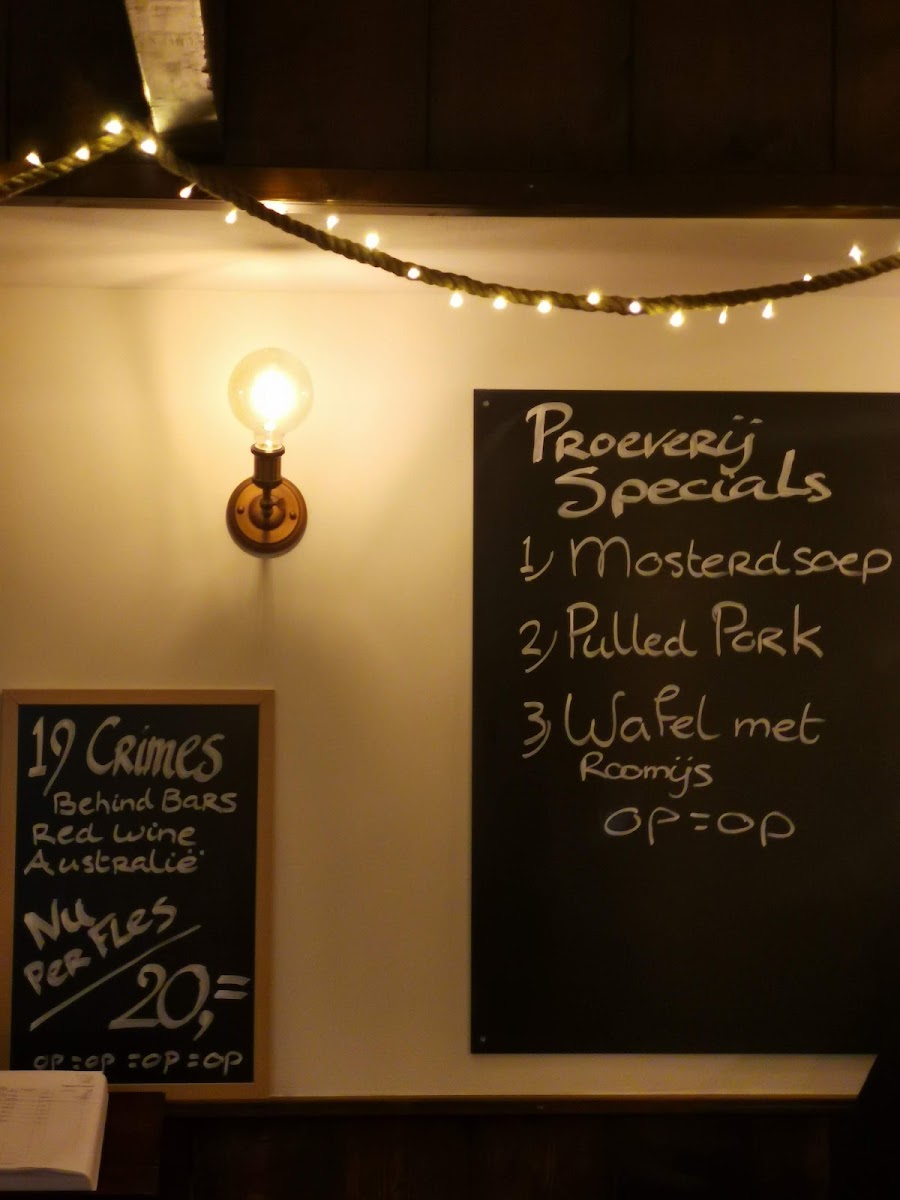 Proeverij
Specials
1) Mosterdsoep
2) Pulled Pork
3) Wafel met
Roomijs
op=op
19 Crimes
Behind Bars
Red Wine
Australië
Nu
Per Fles
20,=
op=op=op=op